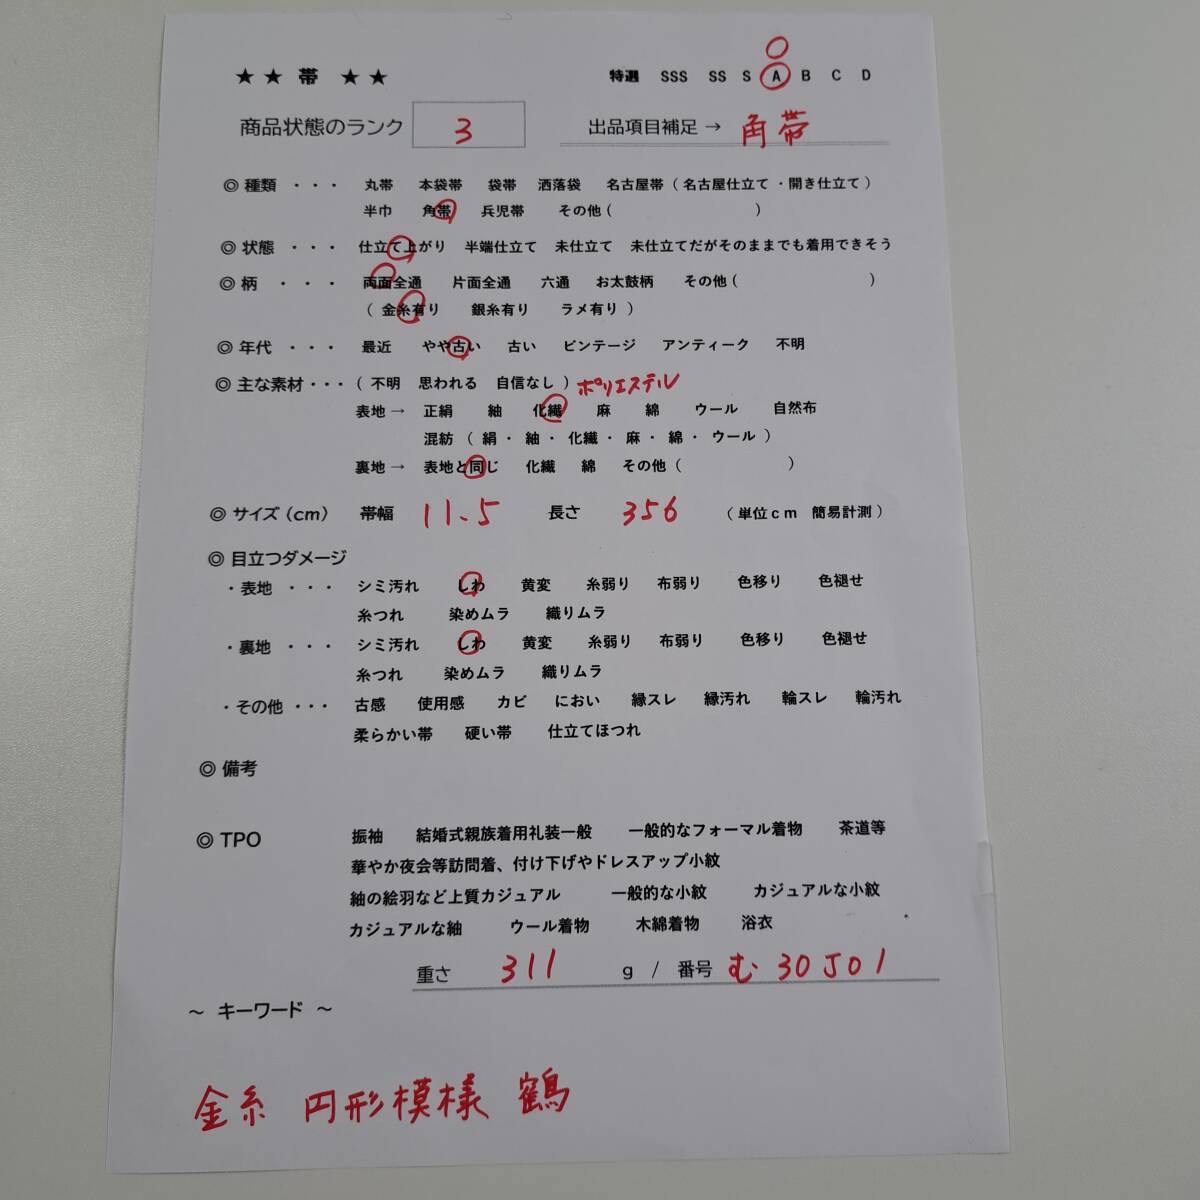 ★★ 帯 ★★ 特選 SSS SS S A B C D
商品状態のランク 3 出品項目補足→ 角帯
◎ 種類 ・・・ 丸帯 本袋帯 袋帯 洒落袋 名古屋帯(名古屋仕立て・開き仕立て)
半巾 角帯 兵児帯 その他( )
◎ 状態 ・・・ 仕立て上がり 半端仕立て 未仕立て 未仕立てだがそのままでも着用できそう
◎ 柄 ・・・ 両面全通 片面全通 六通 お太鼓柄 その他( )
(金糸有り 銀糸有り ラメ有り)
◎ 年代 ・・・ 最近 やや古い 古い ビンテージ アンティーク 不明
◎ 主な素材・・・(不明 思われる 自信なし) ポリエステル
表地→ 正絹 紬 化繊 麻 綿 ウール 自然布
混紡 (絹・紬・化繊・麻・綿・ウール)
裏地→ 表地と同じ 化繊 綿 その他( )
◎ サイズ(cm) 帯幅 11.5 長さ 356 (単位cm 簡易計測)
◎ 目立つダメージ
・表地 ・・・ シミ汚れ しわ 黄変 糸弱り 布弱り 色移り 色褪せ
糸つれ 染めムラ 織りムラ
・裏地 ・・・ シミ汚れ しわ 黄変 糸弱り 布弱り 色移り 色褪せ
糸つれ 染めムラ 織りムラ
・その他 ・・・ 古感 使用感 カビ におい 縁スレ 縁汚れ 輪スレ 輪汚れ
柔らかい帯 硬い帯 仕立てほつれ
◎ 備考
◎ TPO 振袖 結婚式親族着用礼装一般 一般的なフォーマル着物 茶道等
華やか夜会等訪問着、付け下げやドレスアップ小紋
紬の絵羽など上質カジュアル 一般的な小紋 カジュアルな小紋
カジュアルな紬 ウール着物 木綿着物 浴衣
重さ 311 g / 番号 む30J01
～ キーワード ～
金糸 円形模様 鶴